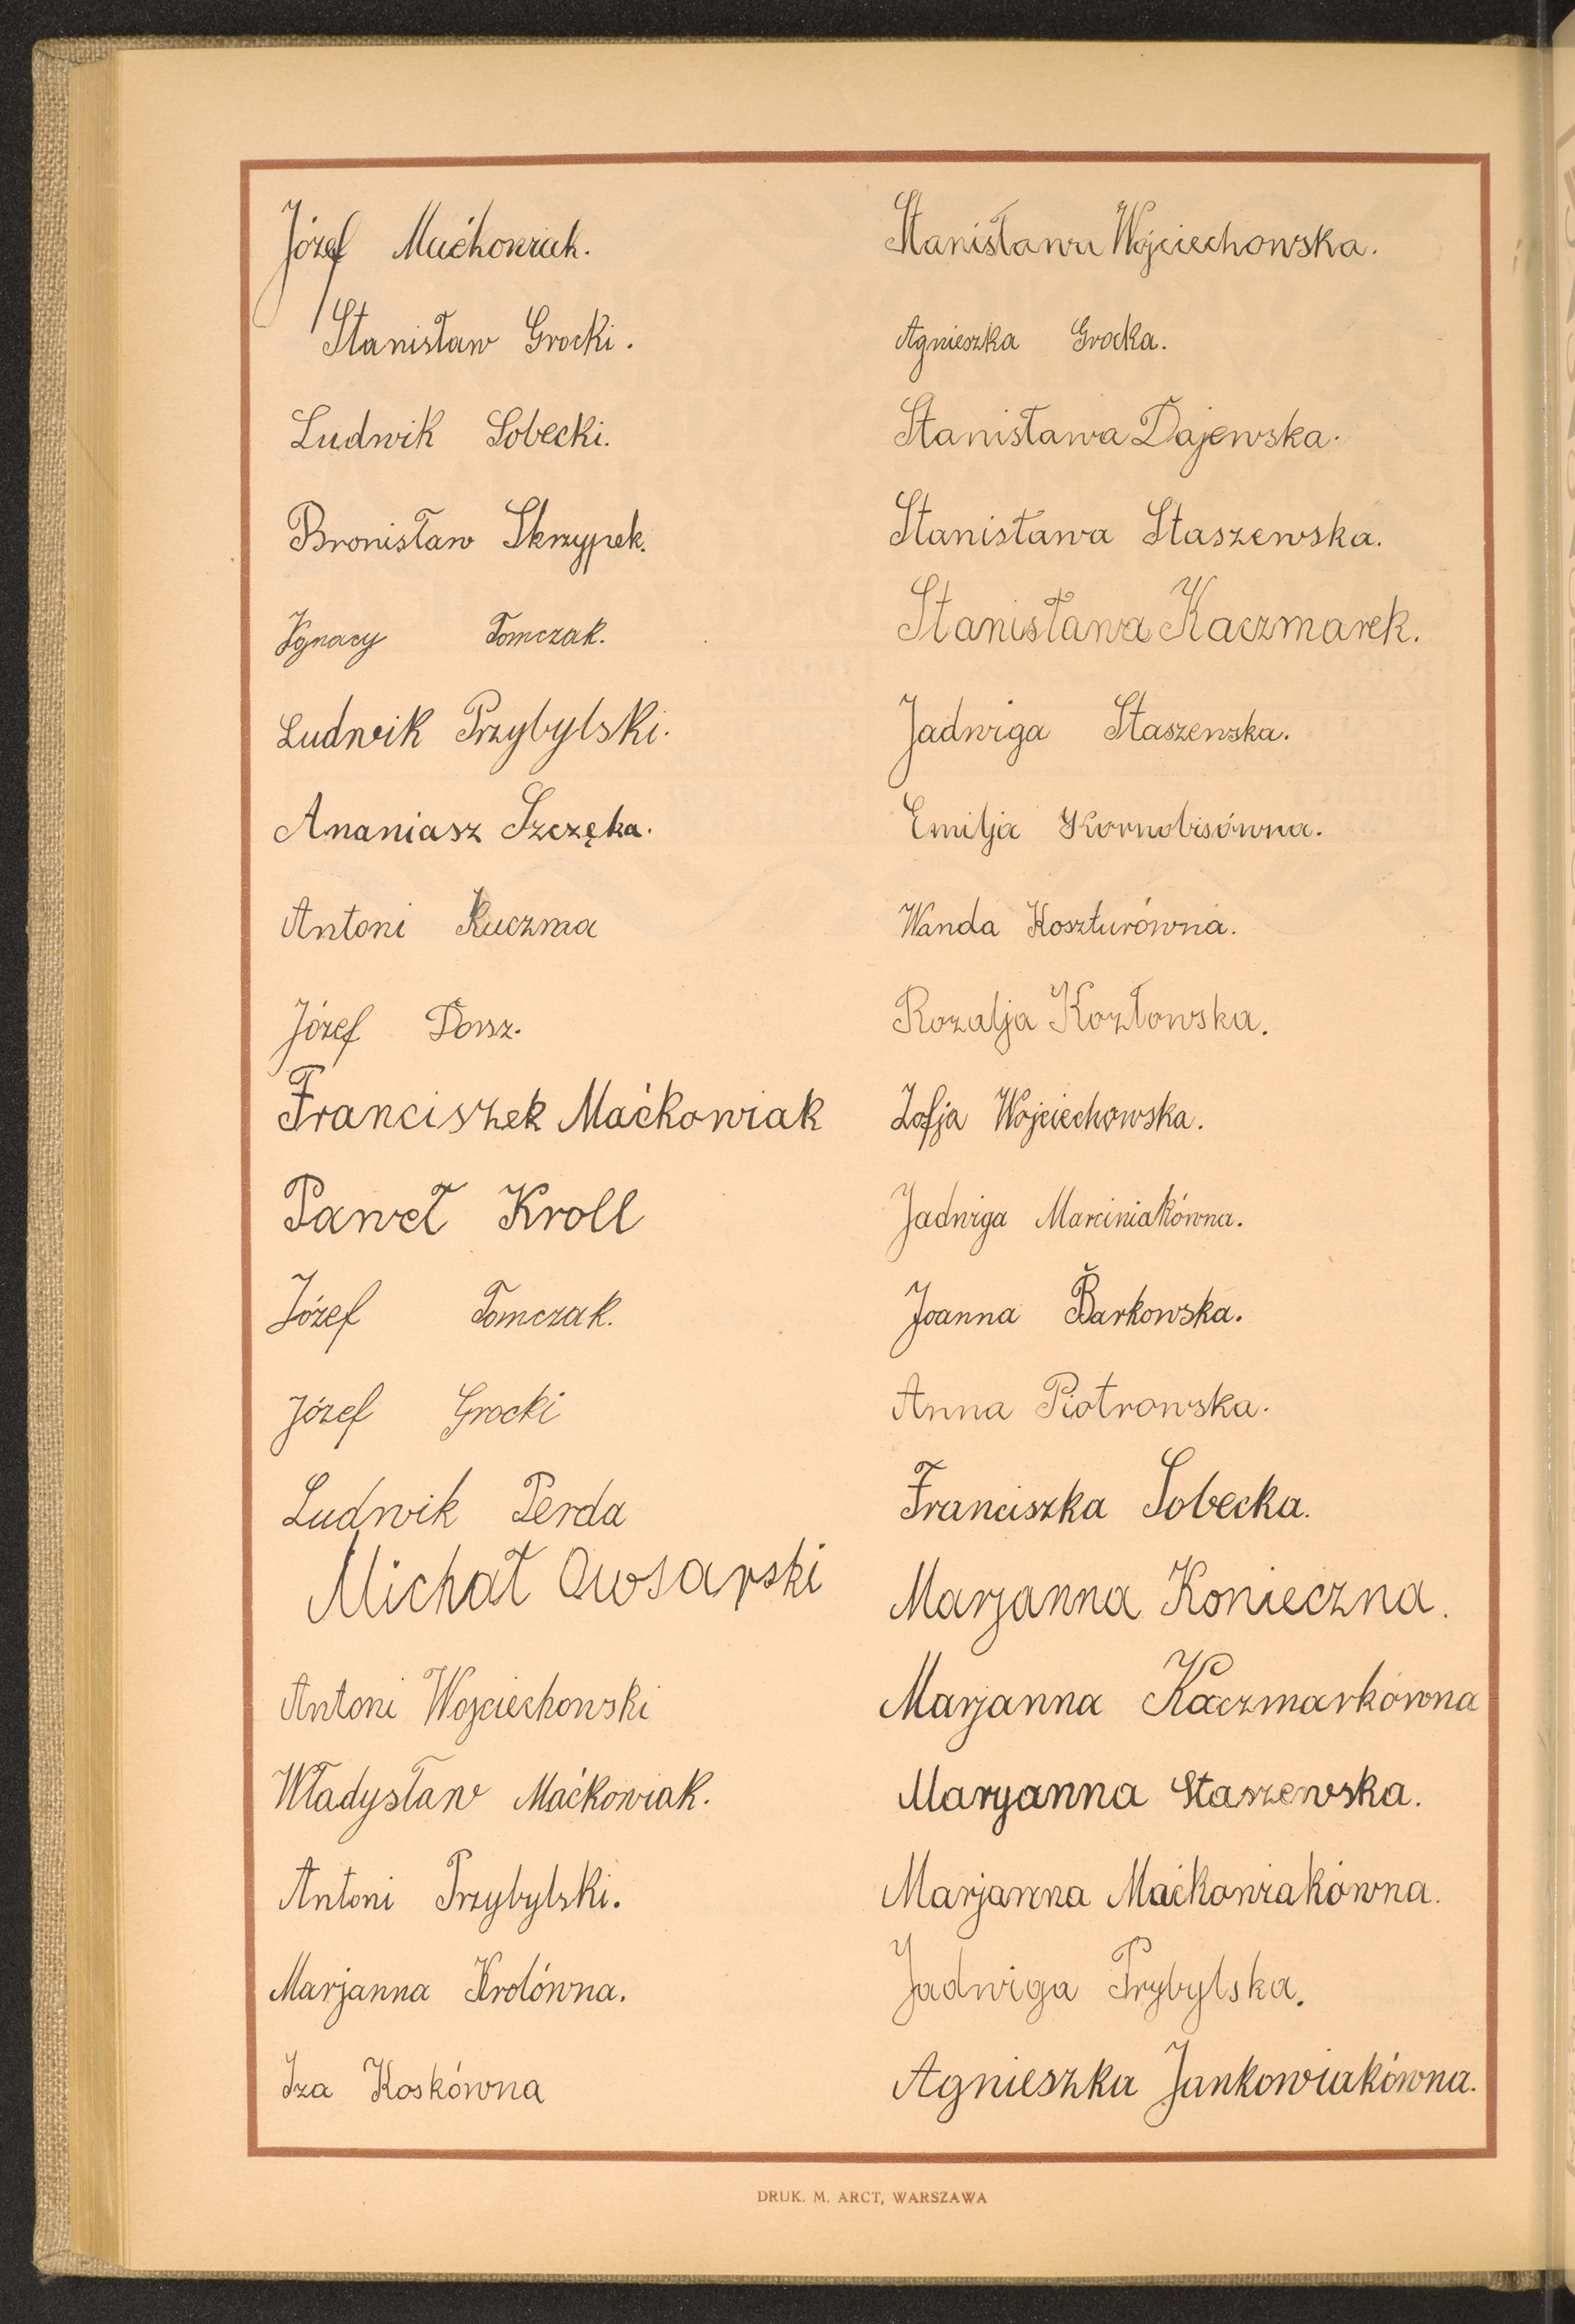 Józef Maćkowiak.
Stanisław Grocki.
Ludwik Sobecki.
Bronisław Skrzypek.
Ignacy Tomczak.
Ludwik Przybylski.
Ananiasz Szczęka.
Antoni Kuczma
Józef Dorsz.
Franciszek Maćkowiak
Paweł Kroll
Józef Tomczak.
Józef Grocki
Ludwik Perda
Michał Owsarski
Antoni Wojciechowski
Władysław Maćkowiak.
Antoni Przybylski.
Marjanna Krolówna.
Iza Koskówna
Stanisława Wojciechowska.
Agnieszka Grocka.
Stanisława Dajewska.
Stanisława Staszewska.
Stanisława Kaczmarek.
Jadwiga Staszewska.
Emilja Kornobisówna.
Wanda Koszturówna.
Rozalja Kozłowska.
Zofja Wojciechowska.
Jadwiga Marciniakówna.
Joanna Barkowska.
Anna Piotrowska.
Franciszka Sobecka.
Marjanna Konieczna.
Marjanna Kaczmarkówna
Maryanna Staszewska.
Marjanna Maćkowiakówna.
Jadwiga Prybylska.
Agnieszka Jankowiakówna.
DRUK. M. ARCT, WARSZAWA